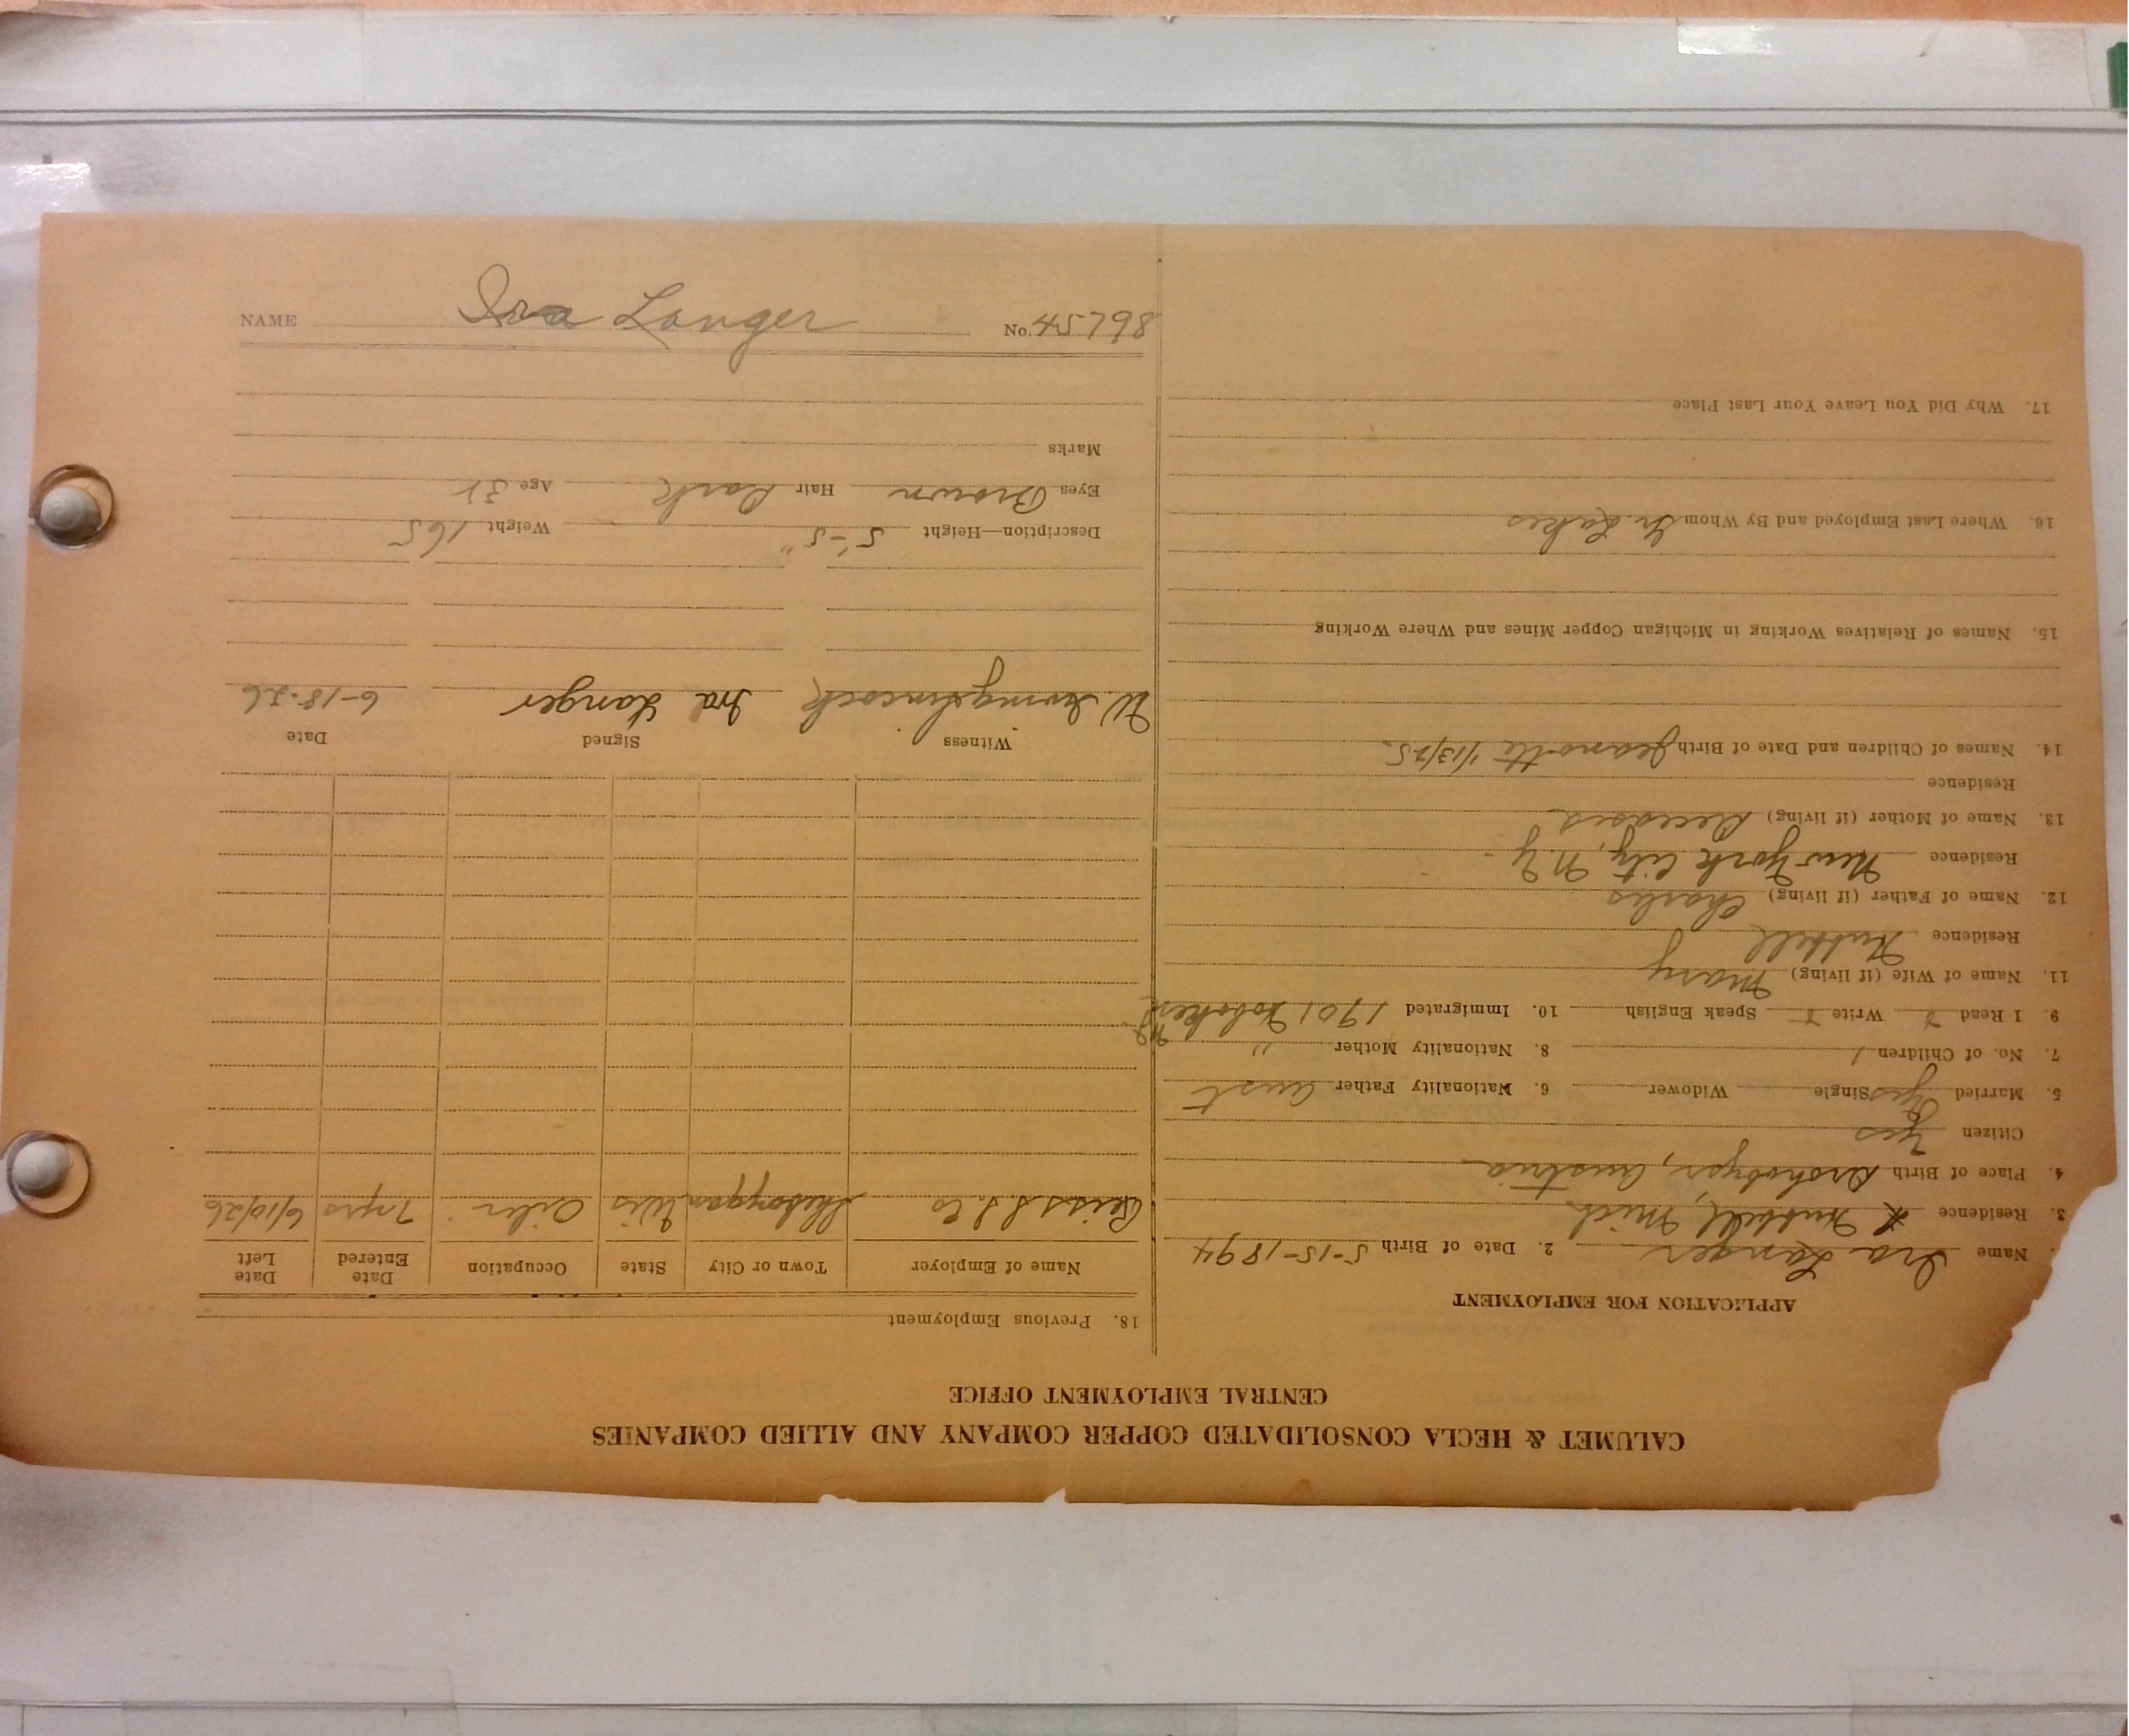 CALUMET & HECLA CONSOLIDATED COPPER COMPANY AND ALLIED COMPANIES
CENTRAL EMPLOYMENT OFFICE
APPLICATION FOR EMPLOYMENT
Name Ira Langer 2. Date of Birth 5-15-1894
3. Residence Hubbell, Mich
4. Place of Birth Drohobycz, Austria
Citizen Yes
5. Married Yes Single Widower 6. Nationality Father Aust
7. No. of Children 1 8. Nationality Mother "
9. I Read Write Speak English 10. Immigrated 1901 Hoboken N.J.
11. Name of Wife (if living) Mary
Residence Hubbell
12. Name of Father (if living) Charles
Residence New York City, N.Y.
13. Name of Mother (if living) Deceased
Residence
14. Names of Children and Date of Birth Jeanette 1/13/25
15. Names of Relatives Working in Michigan Copper Mines and Where Working
16. Where Last Employed and By Whom Gr. Lakes
17. Why Did You Leave Your Last Place
18. Previous Employment
Name of Employer Town or City State Occupation Date Entered Date Left
Reiss S.S. Co Sheboygan Wis Oiler 7 yrs 6/10/26
Witness Signed Date
W. Ira Langer 6-18-26
Description—Height 5'-5" Weight 165
Eyes Brown Hair Dark Age 32
Marks
NAME Ira Langer No. 45798